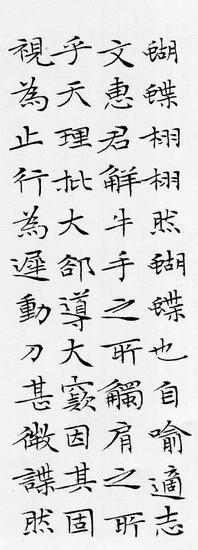 蝴蝶栩栩然蝴蝶也自喻適志
文惠君解牛手之所觸肩之所
乎天理批大郤導大窾因其固
視為止行為遲動刀甚微謋然